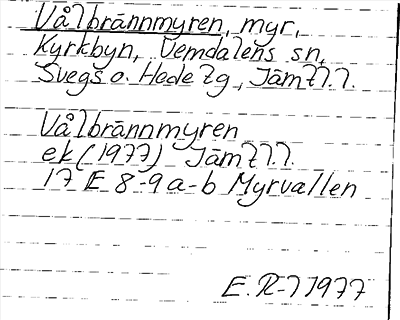 Vålbrännmyren, myr,
Kyrkbyn, Vemdalens sn,
Svegs o. Hede tg, Jämtl. l.
Vålbrännmyren
ek (1977) Jämtl. l.
17 E 8-9 a-b Myrvallen
E. R-l 1977